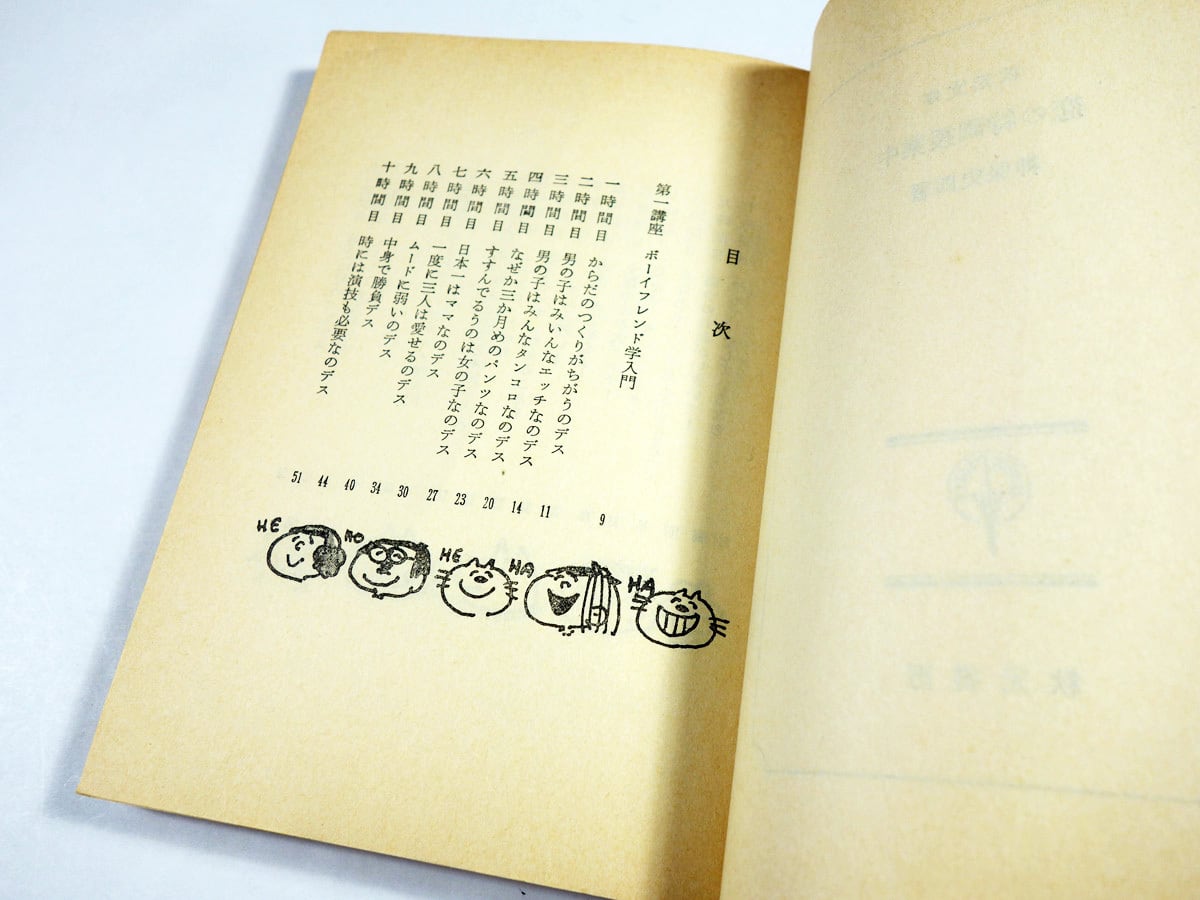 目次
第一講座 ボーイフレンド学入門 9
一時間目 からだのつくりがちがうのデス 11
二時間目 男の子はみいんなエッチなのデス 14
三時間目 男の子はみんなタンコロなのデス 20
四時間目 なぜか三か月めのパンツなのデス 23
五時間目 すすんでるうのは女の子なのデス 27
六時間目 日本一はママなのデス 30
七時間目 一度に三人は愛せるのデス 34
八時間目 ムードに弱いのデス 40
九時間目 中身で勝負デス 44
十時間目 時には演技も必要なのデス 51
HE HO HE HA HA